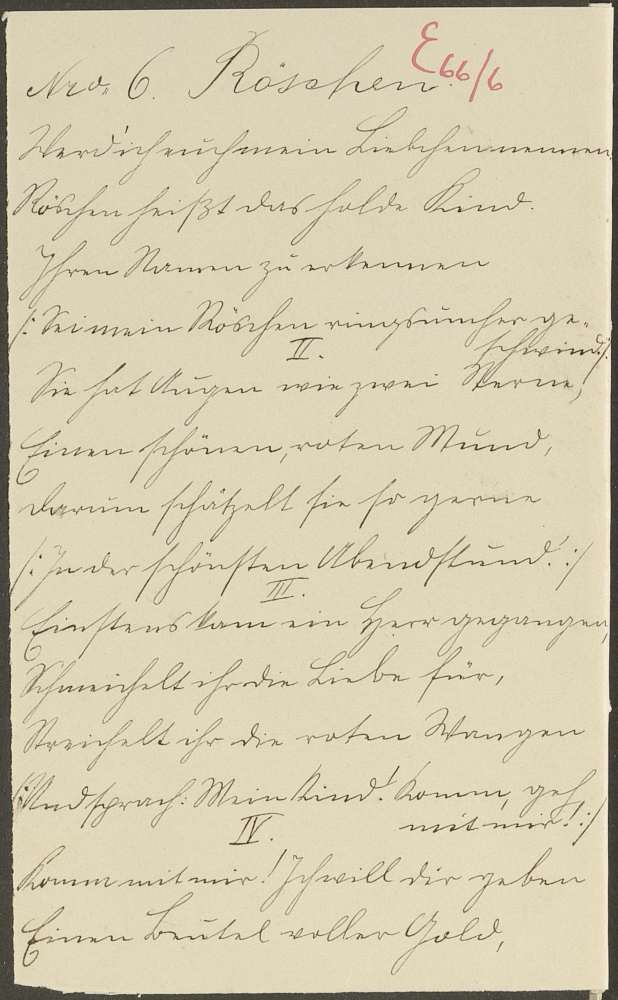 Nro. 6. Röschen.
E 66/6
Werd' ich euch mein Liebchen nennen,
Röschen heißt das holde Kind.
Ihren Namen zu erkennen
/: Sei mein Röschen ringsumher ge-
schwind. :/
II.
Sie hat Augen wie zwei Sterne,
Einen schönen, roten Mund,
Darum schätzelt sie so gerne
/: In der schönsten Abendstund'. :/
III.
Einstens kam ein Herr gegangen,
Schmeichelt ihr die Liebe für,
Streichelt ihr die roten Wangen
/: Und sprach: Mein Kind! Komm, geh
mit mir! :/
IV.
Komm mit mir! Ich will dir geben
Einen Beutel voller Gold,